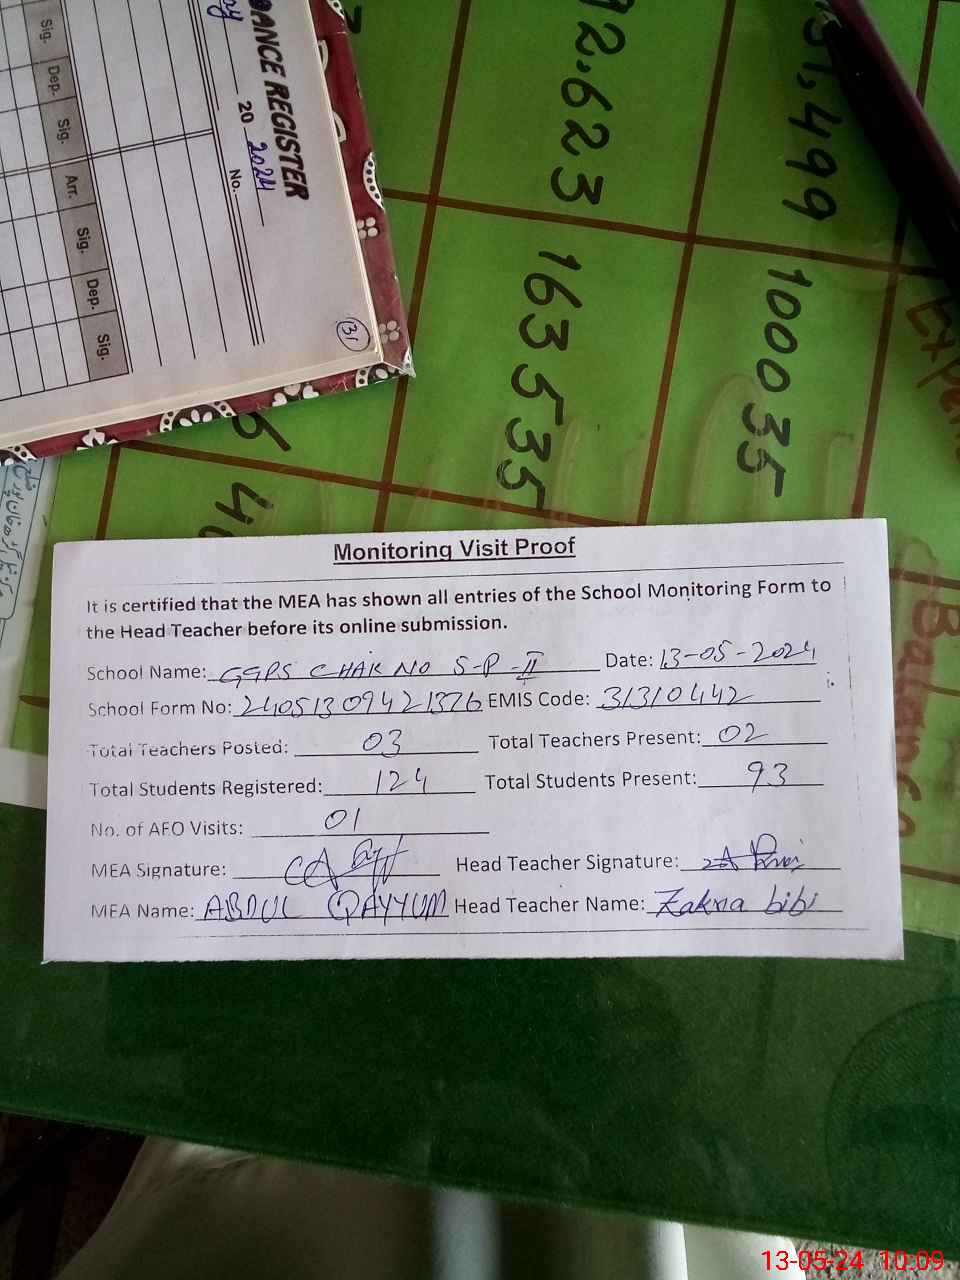 DANCE REGISTER
20 2024
No.
Sig.
Dep.
Sig.
Arr.
Sig.
Dep.
Sig.
131
92.623
31,499
163535
100035
Balance
Monitoring Visit Proof
It is certified that the MEA has shown all entries of the School Monitoring Form to
the Head Teacher before its online submission.
School Name: GGPS CHAK NO 5-P-II Date: 13-05-2024
School Form No: 24051309421376 EMIS Code: 31310442
Total Teachers Posted: 03 Total Teachers Present: 02
Total Students Registered: 124 Total Students Present: 93
No. of AEO Visits: 01
MEA Signature: Head Teacher Signature:
MEA Name: ABDUL QAYYUM Head Teacher Name: Zakna bibi
13-05-24 10:09